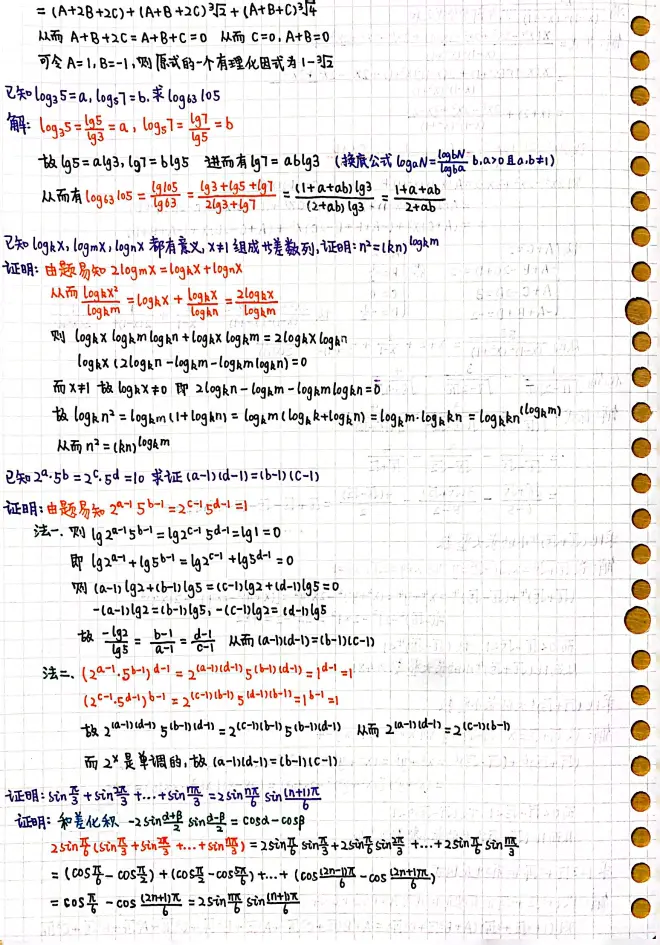 = (A+2B+2C)+(A+B+2C)∛2+(A+B+C)∛4
从而 A+B+2C=A+B+C=0 从而 C=0, A+B=0
可令 A=1, B=-1, 则原式的一个有理化因式为 1-∛2
已知 log₃5=a, log₅7=b, 求 log₆₃105
解: log₃5=lg5/lg3=a, log₅7=lg7/lg5=b
故 lg5=alg3, lg7=blg5 进而有 lg7=ablg3 (换底公式 logaN=logbN/logba b,a>0且a,b≠1)
从而有 log₆₃105=lg105/lg63=(lg3+lg5+lg7)/(2lg3+lg7)=((1+a+ab)lg3)/((2+ab)lg3)=(1+a+ab)/(2+ab)
已知 logkx, logmx, lognx 都有意义, x≠1 组成等差数列, 证明: n²=(kn)^(logkm)
证明: 由题易知 2logmx=logkx+lognx
从而 logkx²/logkm=logkx+logkx/logkn=2logkx/logkm
则 logkx logkm logkn+logkx logkm=2logkx logkn
logkx(2logkn-logkm-logkm logkn)=0
而 x≠1 故 logkx≠0 即 2logkn-logkm-logkm logkn=0
故 logkn²=logkm(1+logkn)=logkm(logkk+logkn)=logkm·logkkn=logkkn^(logkm)
从而 n²=(kn)^logkm
已知 2ᵃ·5ᵇ=2ᶜ·5ᵈ=10 求证 (a-1)(d-1)=(b-1)(c-1)
证明: 由题易知 2^(a-1) 5^(b-1)=2^(c-1) 5^(d-1)=1
法一、则 lg2^(a-1)5^(b-1)=lg2^(c-1)5^(d-1)=lg1=0
即 lg2^(a-1)+lg5^(b-1)=lg2^(c-1)+lg5^(d-1)=0
则 (a-1)lg2+(b-1)lg5=(c-1)lg2+(d-1)lg5=0
-(a-1)lg2=(b-1)lg5, -(c-1)lg2=(d-1)lg5
故 -lg2/lg5=(b-1)/(a-1)=(d-1)/(c-1) 从而 (a-1)(d-1)=(b-1)(c-1)
法二、(2^(a-1)·5^(b-1))^(d-1)=2^((a-1)(d-1)) 5^((b-1)(d-1))=1^(d-1)=1
(2^(c-1)·5^(d-1))^(b-1)=2^((c-1)(b-1)) 5^((d-1)(b-1))=1^(b-1)=1
故 2^((a-1)(d-1)) 5^((b-1)(d-1))=2^((c-1)(b-1)) 5^((b-1)(d-1)) 从而 2^((a-1)(d-1))=2^((c-1)(b-1))
而 2ˣ 是单调的, 故 (a-1)(d-1)=(b-1)(c-1)
证明: sin π/3+sin 2π/3+...+sin nπ/3=2sin nπ/6 sin (n+1)π/6
证明: 和差化积 -2sin (α+β)/2 sin (α-β)/2=cosα-cosβ
2sin π/6(sin π/3+sin 2π/3+...+sin nπ/3)=2sin π/6 sin π/3+2sin π/6 sin 2π/3+...+2sin π/6 sin nπ/3
=(cos π/6-cos π/2)+(cos π/2-cos 5π/6)+...+(cos (2n-1)π/6-cos (2n+1)π/6)
=cos π/6-cos (2n+1)π/6=2sin nπ/6 sin (n+1)π/6